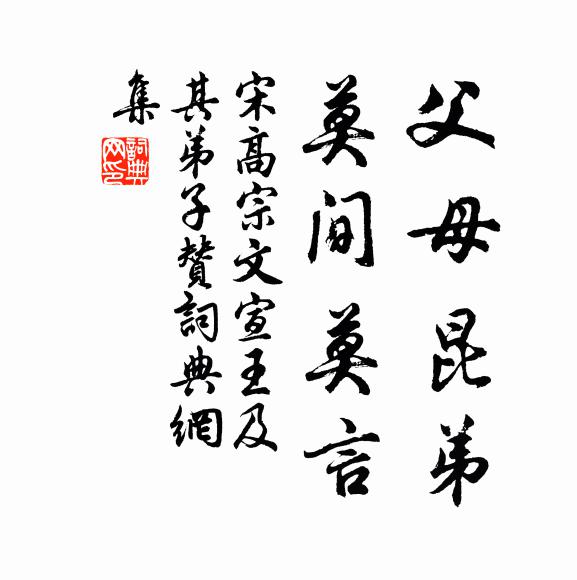 父母昆弟
莫間莫言
宋高宗文宣王及
其弟子贊詞典網
集
詞典
网印